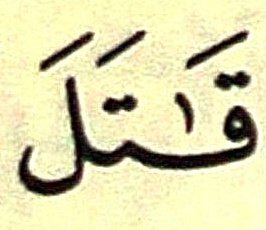 قَٰتَلَ